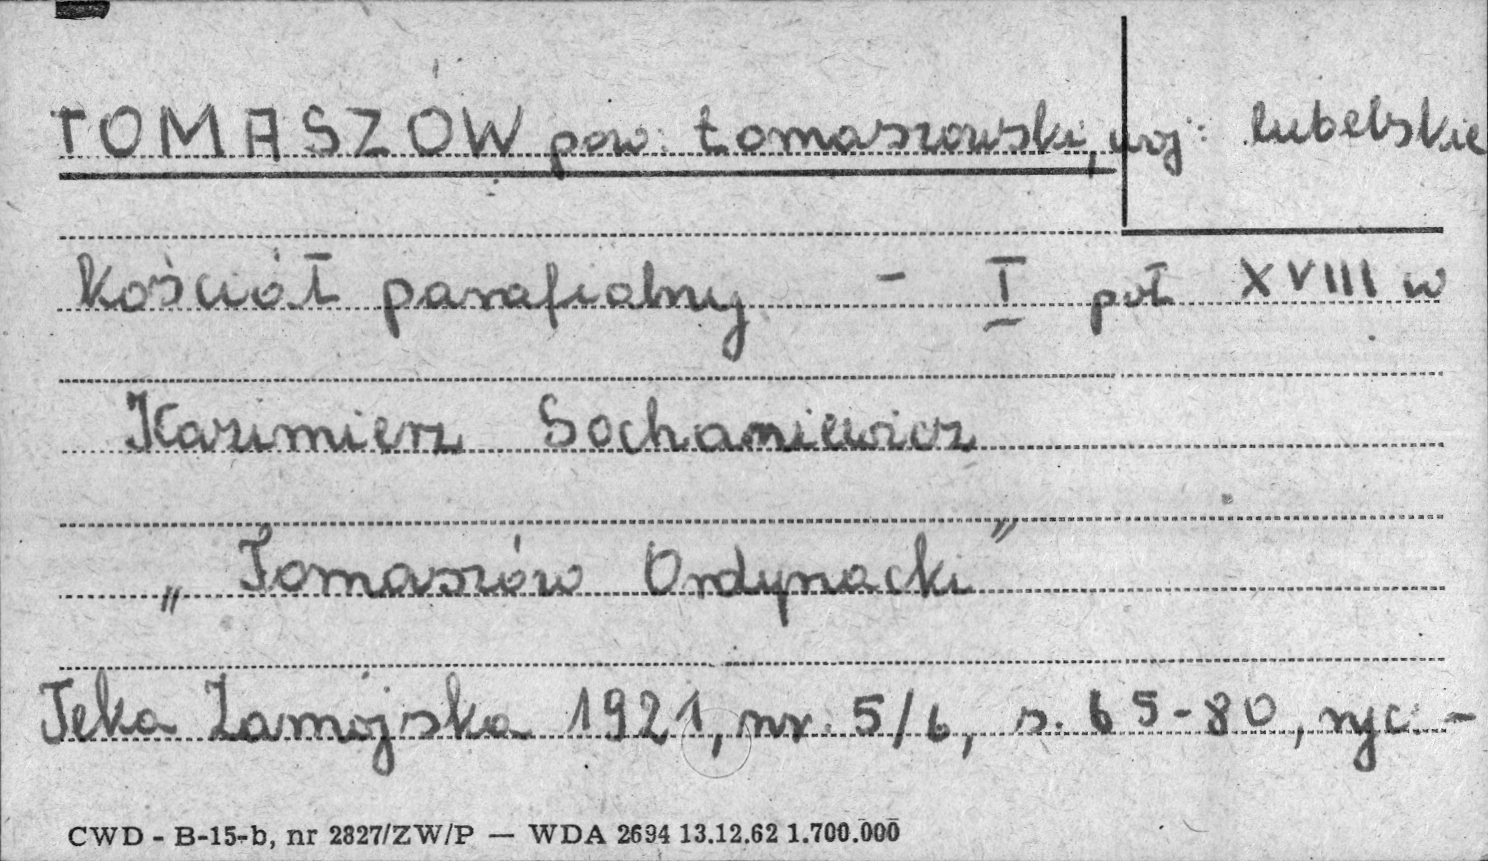 TOMASZÓW pow: tomaszowski, woj: lubelskie
Kościół parafialny - I poł XVIII w
Kazimierz Sochaniewicz
„Tomaszów Ordynacki”
Teka Zamojska 1921, nr. 5/6, s. 65-80, ryc. -
CWD - B-15-b, nr 2827/ZW/P — WDA 2694 13.12.62 1.700.000